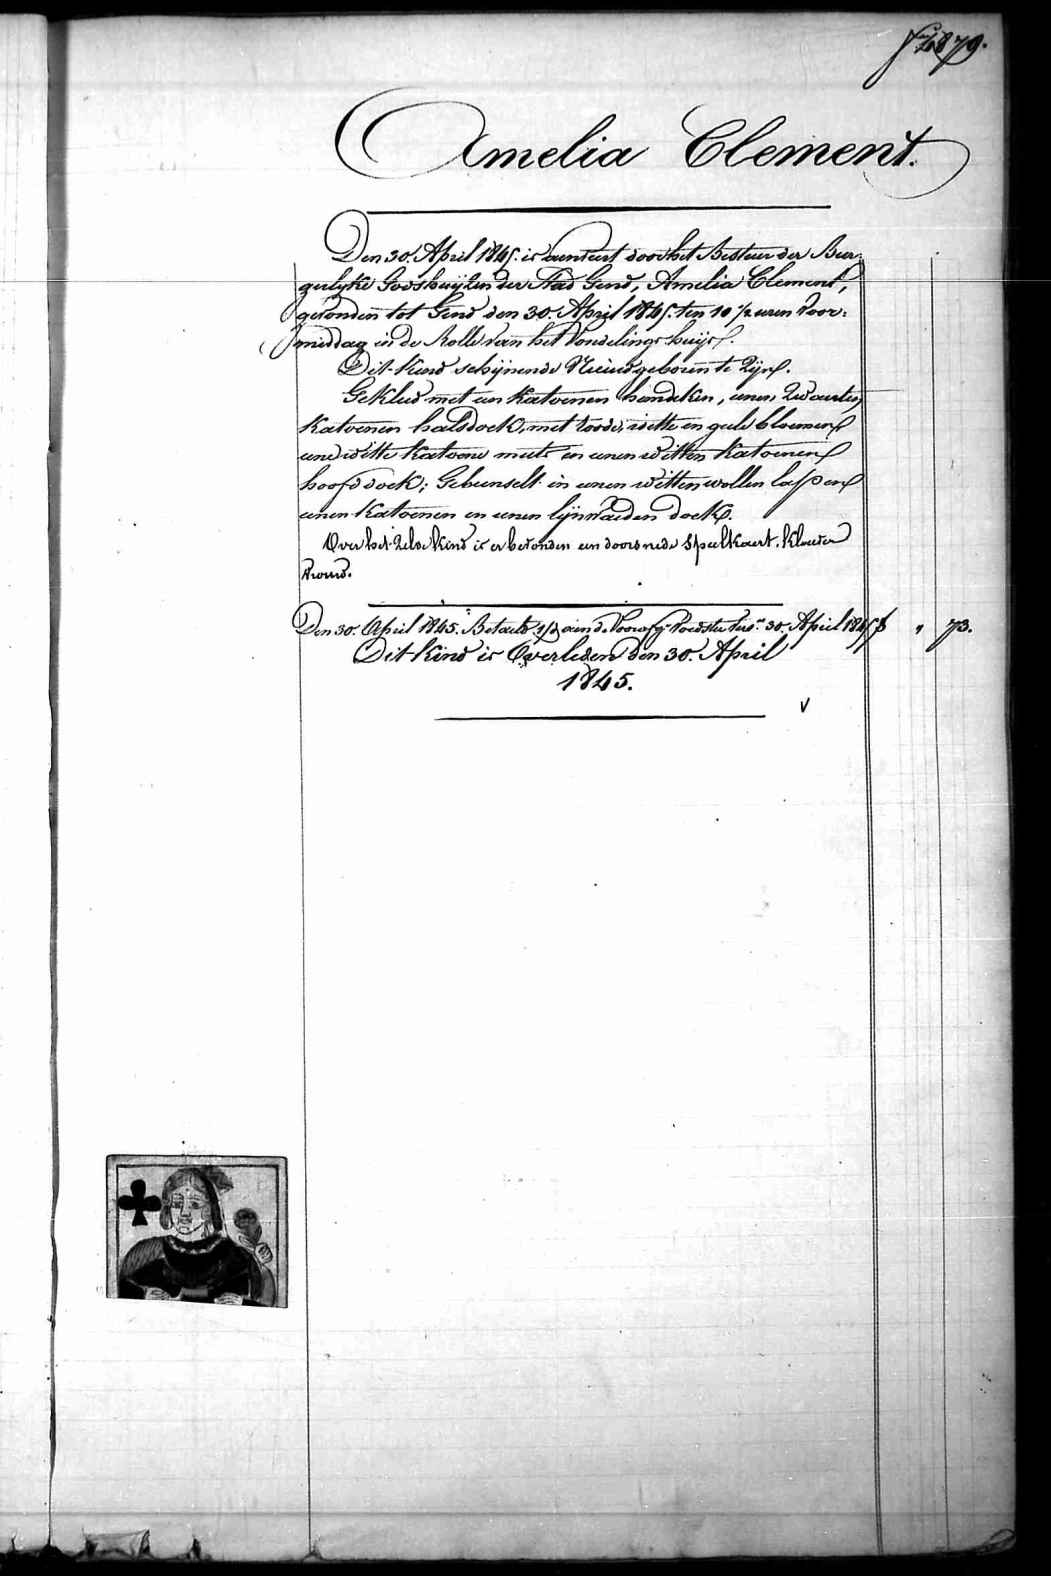 879.
Amelia Clement.
Den 30. April 1845. is aenveert door het Bestuer der Bur-
gerlyke Godshuijzen der Stad Gend, Amelia Clement,
gevonden tot Gend den 30. April 1845. ten 10 1/2 uren voor-
middag in de Rolle van het Vondelings huijs.
Dit kind schijnende Nieuwgeboren te Zijn.
Gekleed met een Katoenen hemdeken, eenen Zwarten
katoenen halsdoek, met roode, witte en gele bloemen
eene witte katoene muts en eenen witten katoenen
hoofddoek; Gebunselt in eenen witten wollen lap en
eenen katoenen en eenen lijnwaeden doek.
Over het zelve kind is er bevonden een doorsnede Speelkaert. Klaver
Vrouw.
Den 30. April 1845. Betaeld 1/2 aen de Voorafg. Voedster 30. April 1845 " 73.
Dit kind is Overleden den 30. April
1845.